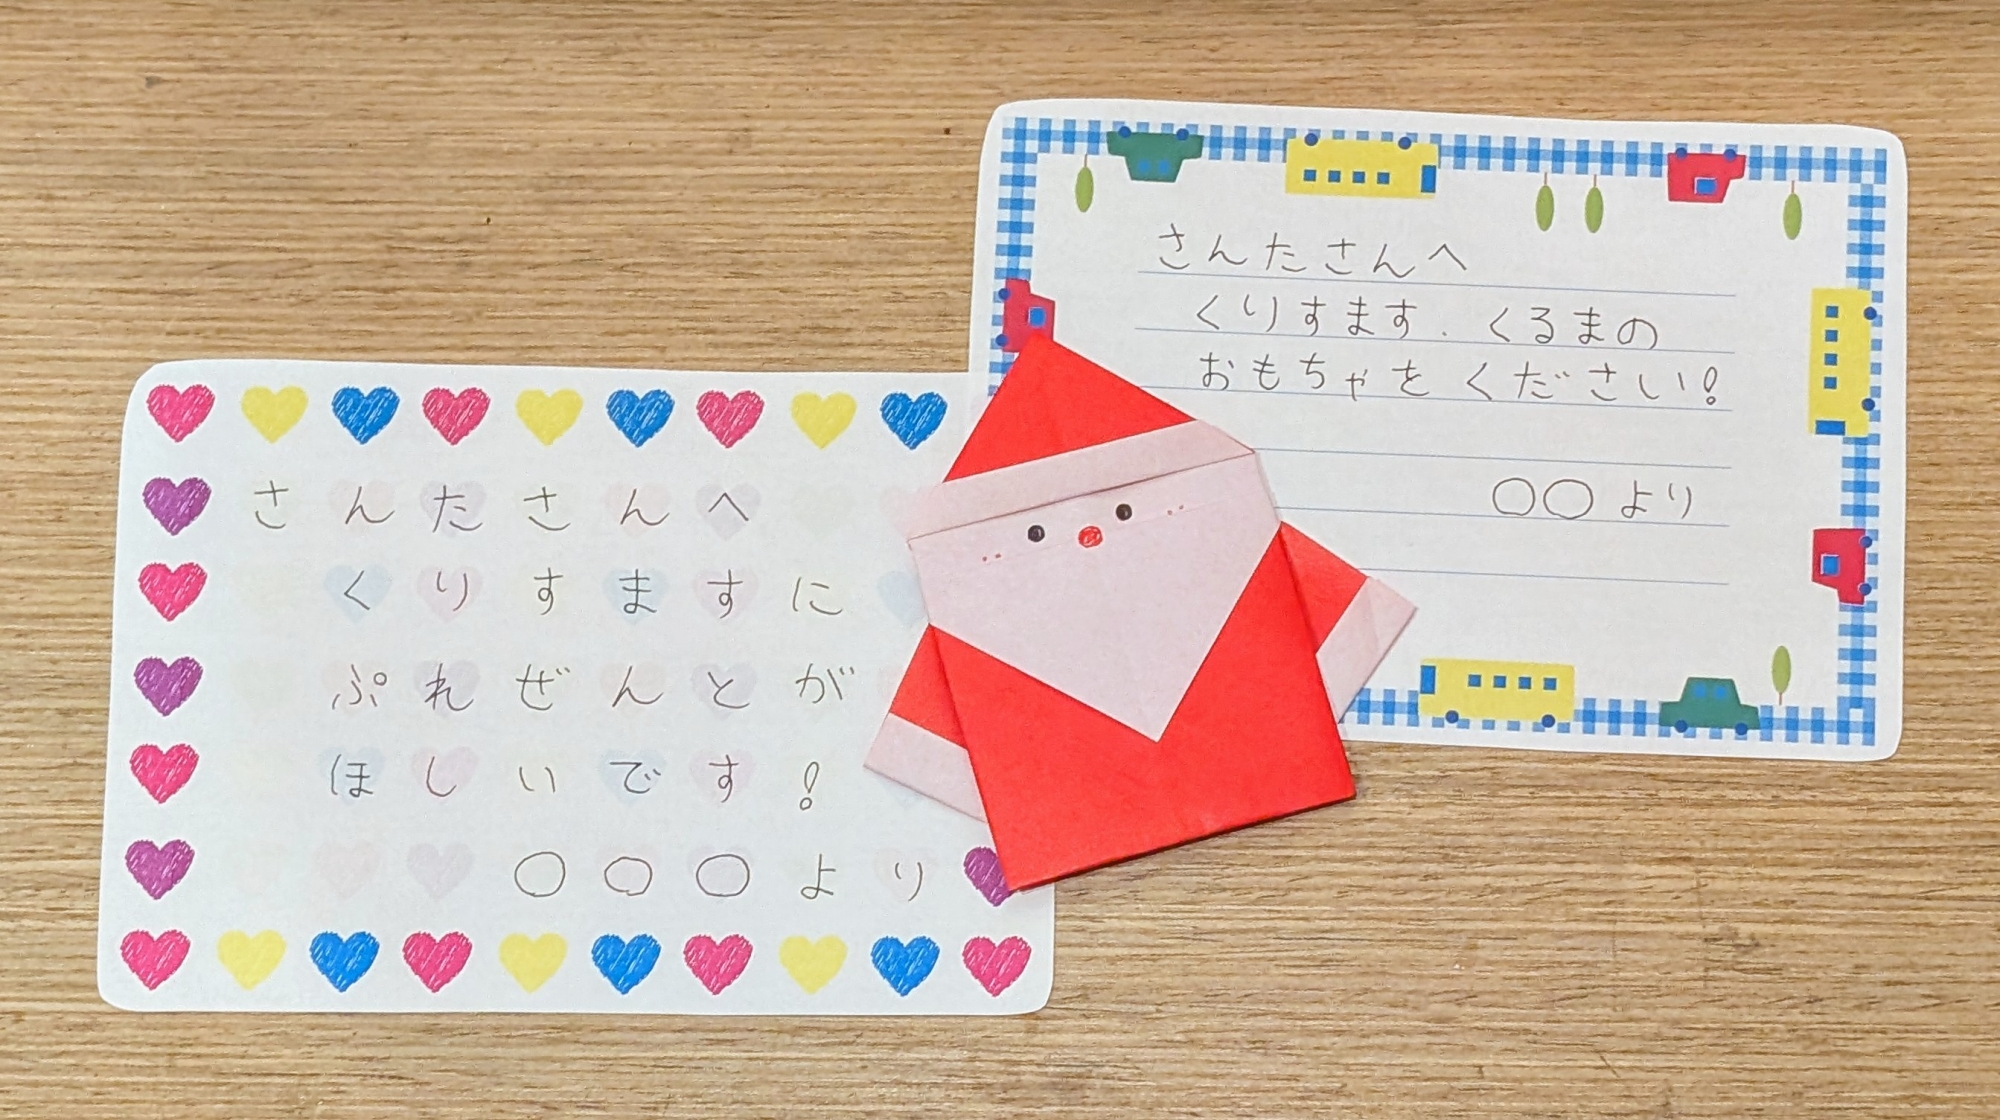 さんたさんへ
くりすますに
ぷれぜんとが
ほしいです!
○○○より
さんたさんへ
くりすます.くるまの
おもちゃをください!
○○より